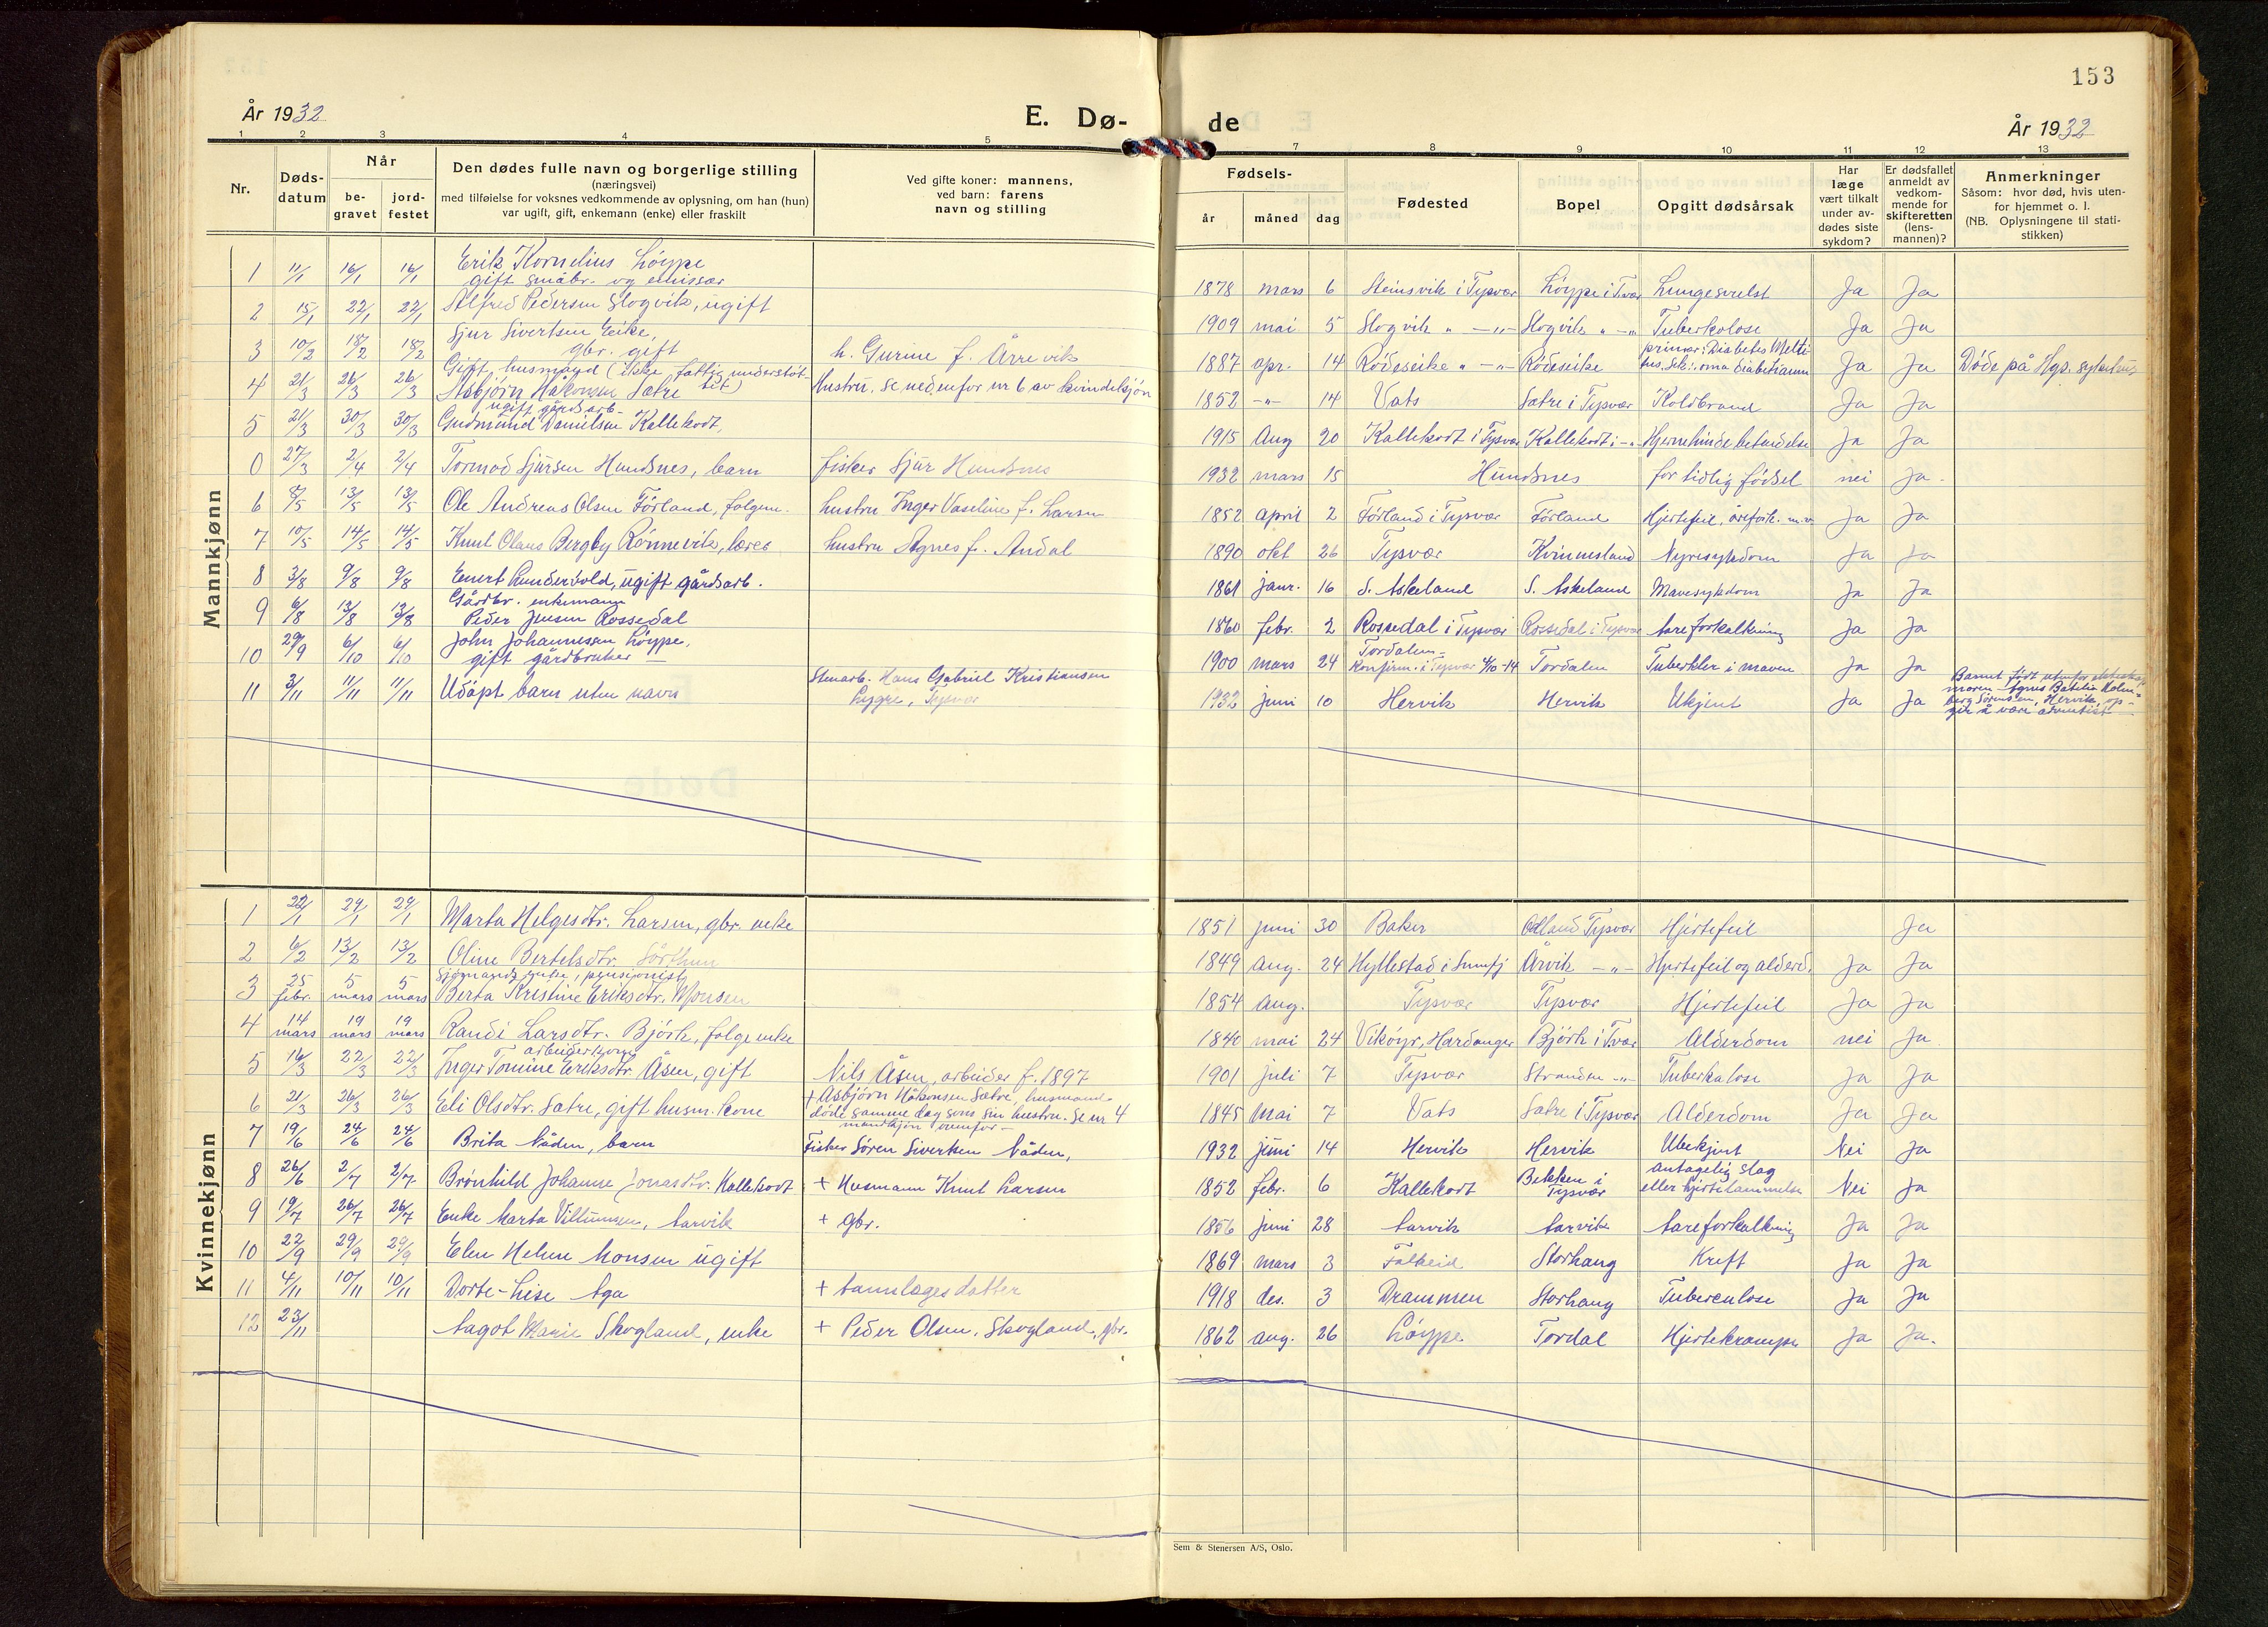 153
År 1932
E. Dø-
de
År 1932
1 2 3 4 5 7 8 9 10 11 12 13
Nr.
Døds-
datum
Når
be-
gravet
jord-
festet
Den dødes fulle navn og borgerlige stilling
(næringsvei)
med tilføielse for voksnes vedkommende av oplysning, om han (hun)
var ugift, gift, enkemann (enke) eller fraskilt
Ved gifte koner: mannens,
ved barn: farens
navn og stilling
Fødsels-
år
måned
dag
Fødested
Bopel
Opgitt dødsårsak
Har
læge
vært tilkalt
under av-
dødes siste
sykdom?
Er dødsfallet
anmeldt av
vedkom-
mende for
skifteretten
(lens-
mannen)?
Anmerkninger
Såsom: hvor død, hvis uten-
for hjemmet o. l.
(NB. Oplysningene til stati-
stikken)
Mannkjønn
1 11/1 16/1 16/1 Erik Kornelius Løyppe
gift småbr. og emissær
1878 mars 6 Steinsvik i Tysvær Løyppe i Tvær Lungesvulst Ja Ja
2 15/1 22/1 22/1 Alfred Pedersen Slogvik, ugift
1909 mai 5 Slogvik " -"- Slogvik " -"- Tuberkolose Ja Ja
3 10/2 18/2 18/2 Sjur Sivertsen Eike,
gbr. gift
h. Gurine f. Årrevik
1887 apr. 14 Rødeseike " -"- Rødeseike primær: Diabetes Melli-
tus. Sek: coma diabeticum Ja Ja Døde på Hgs. sykehus
4 21/3 26/3 26/3 Gift, husmand (ikke fattigunderstøt-
tet)
Asbjørn Håkonsen Sætre
Hustru, se nedenfor nr 6 av kvindekjøn
1852 -"- 14 Vats Sætre i Tysvær Koldbrand Ja Ja
5 21/3 30/3 30/3 ugift gårdsarb.
Gudmund Danielsen Kallekodt,
1915 Aug 20 Kallekodt i Tysvær Kallekodt i -"- Hjernehindebetendelse Ja Ja
0 27/3 2/4 2/4 Tormod Sjursen Hundsnes, barn fisker Sjur Hundsnes
1932 mars 15 Hundsnes for tidlig fødsel nei Ja
6 8/5 13/5 13/5 Ole Andreas Olsen Førland, følgem. hustru Inger Vaseline f. Larsen
1852 april 2 Førland i Tysvær Førland Hjertefeil, årefork. m.v. Ja Ja
7 10/5 14/5 14/5 Knut Olaus Bergby Rønnevik, lærer hustru Agnes f. Andal
1890 okt 26 Tysvær Kvinnesland Nyresykdom Ja Ja
8 3/8 9/8 9/8 Enert Lundervold, ugift gårdsarb.
1861 janr. 16 S. Askeland S. Askeland Mavesykdom Ja Ja
9 6/8 13/8 13/8 Gårdbr. enkemann
Peder Jensen Rossedal
1860 febr. 2 Rossedal i Tysvær Rossedal i Tysvær Aareforkalkning Ja Ja
10 29/9 6/10 6/10 John Johannessen Løyppe,
gift gårdbruker
1900 mars 24 Tordalen
Konfirm. i Tysvær 4/10-14 Tordalen Tuberkler i maven Ja Ja
11 3/11 11/11 11/11 Udøpt barn uten navn
Stenarb. Hans Gabriel Kristiansen
Lygre, Tysvær
1932 juni 10 Hervik Hervik Ukjent Ja Ja
Barnet født utenfor ekteskap
moren Agnes Batilia Holm-
berg Sørensen, Hervik, op-
gir å være adventist
Kvinnekjønn
1 22/1 29/1 29/1 Marta Helgesdtr. Larsen, gbr. enke
1851 juni 30 Baker Odland Tysvær Hjertefeil Ja
2 6/2 13/2 13/2 Oline Bertelsdtr. Sørthun
1849 aug. 24 Hyllestad i Sunnfj Årvik -"- Hjertefeil og alderd. Ja Ja
3 25 febr. 5 mars 5 mars Sjømands enke, pensjonist
Berta Kristine Eriksdtr. Monsen
1854 aug. Tysvær Tysvær Hjertefeil Ja Ja
4 14 mars 19 mars 19 mars Randi Larsdtr. Bjørk, følgeenke
1840 mai 24 Vikøyr, Hardanger Bjørk i Tvær Alderdom nei Ja
5 16/3 22/3 22/3 arbeiderkone
Inger Tomine Eriksdtr Åsen, gift Nils Åsen, arbeider f. 1897
1901 juli 7 Tysvær Stranden -"- Tuberkulose Ja Ja
6 21/3 26/3 26/3 Eli Olsdtr. Sætre, gift husm. kone
+ Asbjørn Håkonsen Sætre, husmand
døde samme dag som sin hustru. Se nr 4
mandkjøn ovenfor
1845 Mai 7 Vats Sætre i Tysvær Alderdom Ja Ja
7 19/6 24/6 24/6 Brita Nåden, barn Fisker Søren Sivertsen Nåden,
1932 juni 14 Hervik Hervik Ubekjent Nei Ja
8 26/6 2/7 2/7 Brønhild Johanne Jonasdtr. Kallekodt + Husmann Knut Larsen
1852 febr. 6 Kallekodt Bekken i
Tysvær antagelig slag
eller hjertelammelse Nei Ja
9 19/7 26/7 26/7 Enke Marta Villumsen, Aarvik + gbr.
1856 juni 28 Aarvik Aarvik Aareforkalkning Ja Ja
10 22/9 29/9 29/9 Elen Helene Monsen ugift
1869 mars 3 Falkeid Storhaug Kreft Ja Ja
11 4/11 10/11 10/11 Dorte-Lise Aga + tannlæges datter
1918 des. 3 Drammen Storhaug Tuberculose Ja Ja
12 23/11 Aagot Marie Skogland, enke + Peder Olsen Skogland, gbr.
1862 aug. 26 Løyppe Tordal Hjertekrampe Ja Ja.
Sem & Stenersen A/S, Oslo.